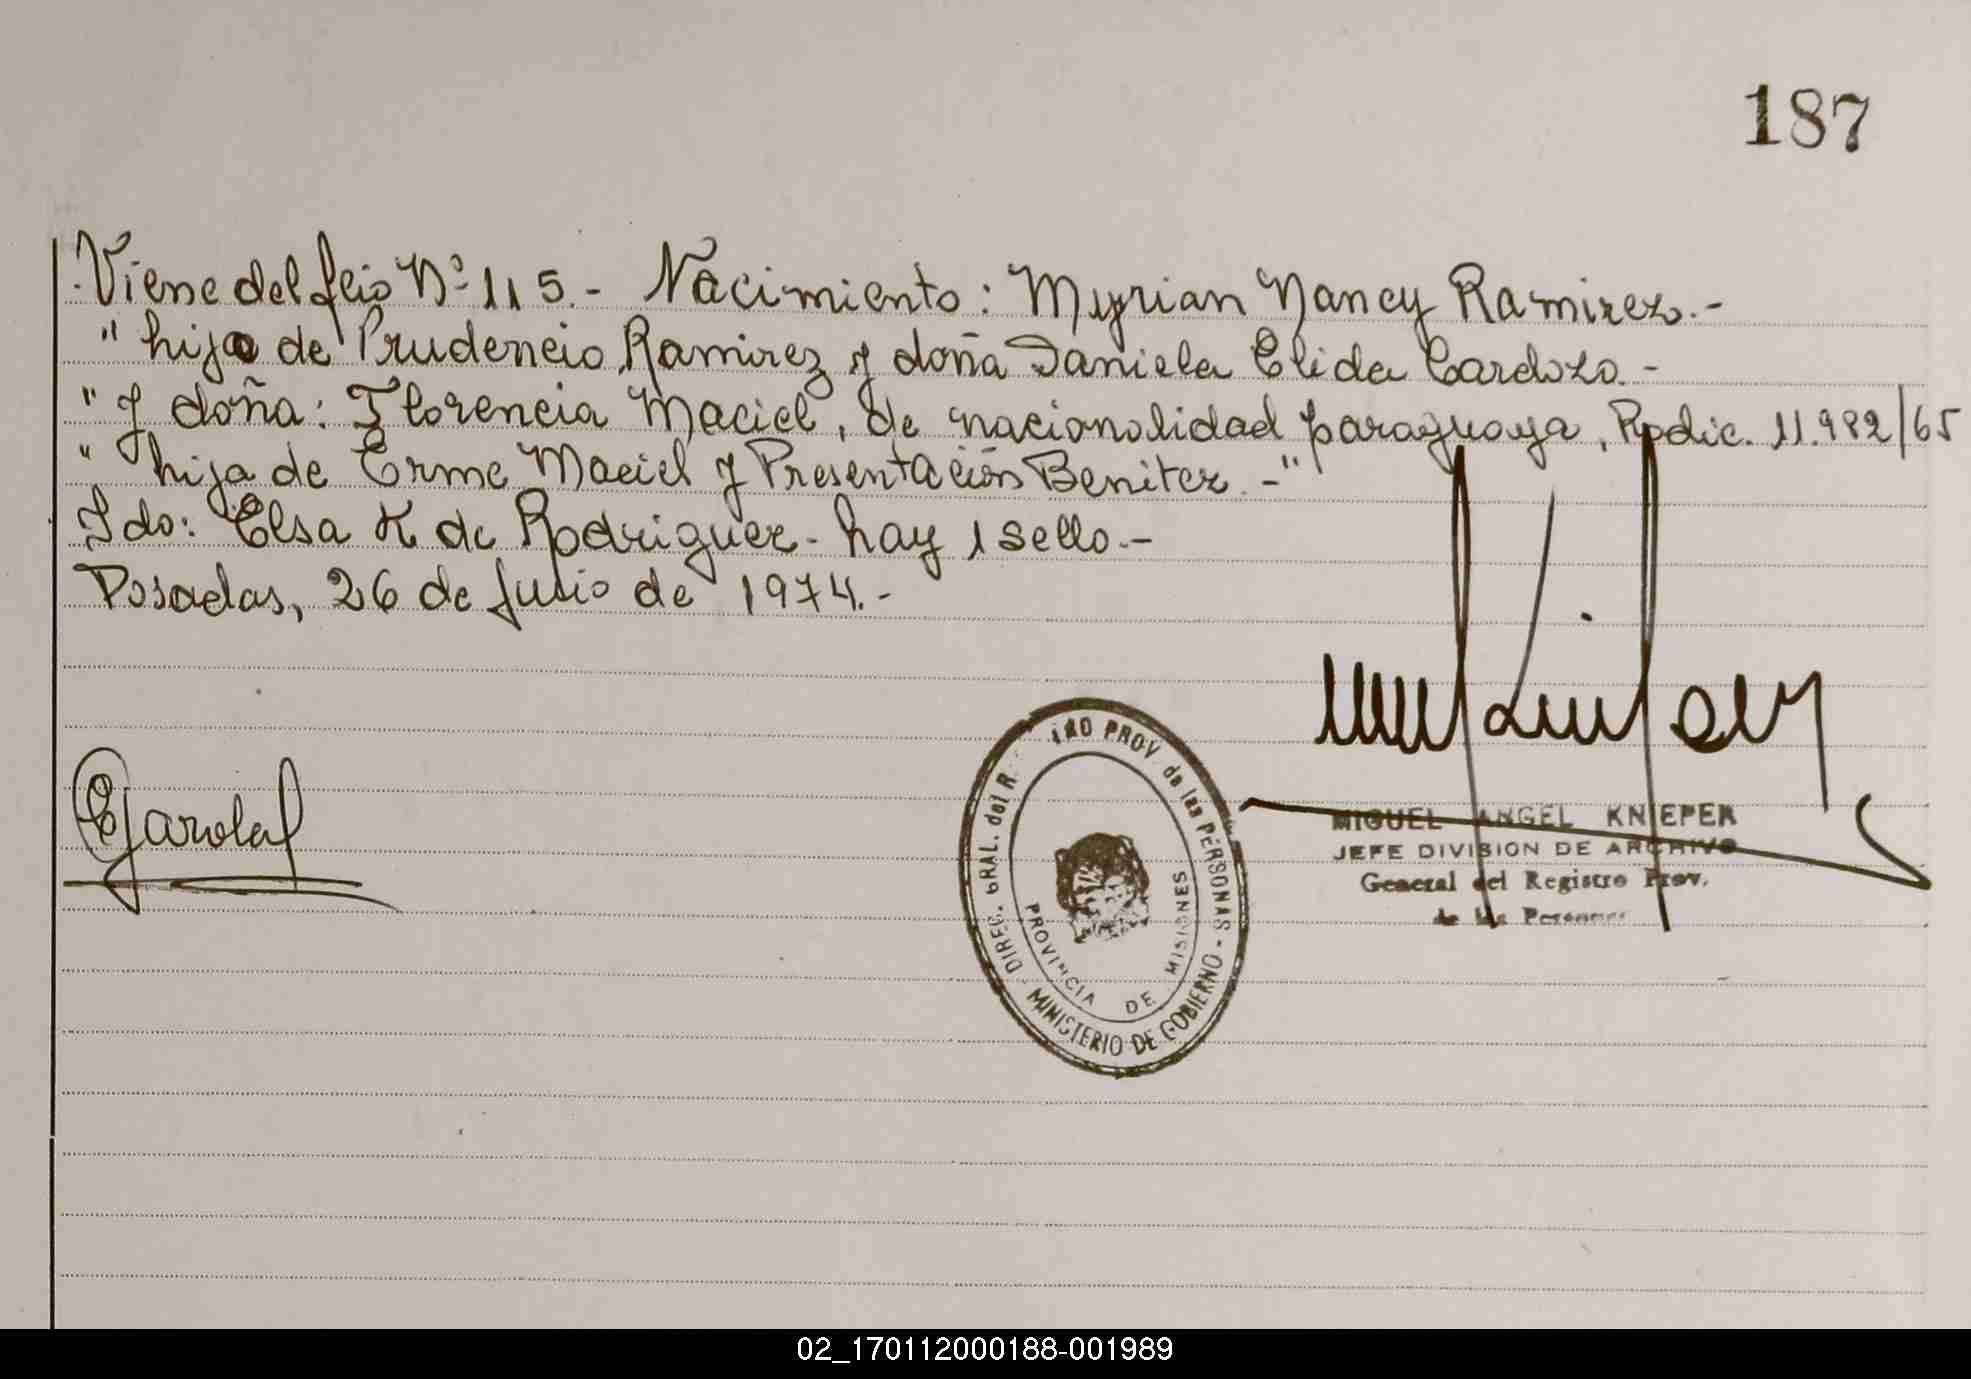 187
Viene del feio Nº 115.- Nacimiento: Myrian Nancy Ramirez.-
" hijo de Prudencio Ramirez y doña Daniela Elida Cardozo.-
" y doña: Florencia Maciel, de nacionalidad paraguaya, Rpdic. 11.982/65
" hija de Erme Maciel y Presentación Benitez.-"
Fdo: Elsa K de Rodriguez - hay 1 sello.-
Posadas, 26 de Julio de 1974.-
MIGUEL ANGEL KNIEPER
JEFE DIVISION DE ARCHIVO
General del Registro Prov.
de las Personas
DIREC. GRAL. del R. PROV. de las PERSONAS - MINISTERIO DE GOBIERNO -
PROVINCIA DE MISIONES
02_170112000188-001989